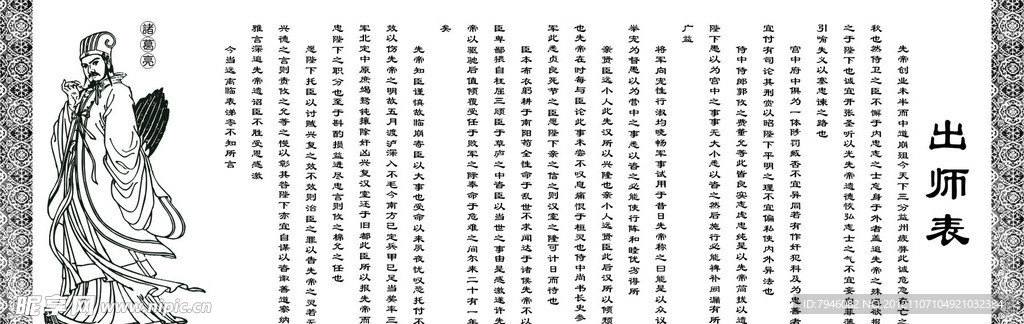 出师表
先帝创业未半而中道崩殂今天下三分益州疲弊此诚危急存亡之
秋也然侍卫之臣不懈于内忠志之士忘身于外者盖追先帝之殊遇欲报
之于陛下也诚宜开张圣听以光先帝遗德恢弘志士之气不宜妄自菲薄
引喻失义以塞忠谏之路也
宫中府中俱为一体陟罚臧否不宜异同若有作奸犯科及为忠善者
宜付有司论其刑赏以昭陛下平明之理不宜偏私使内外异法也
侍中侍郎郭攸之费董允等此皆良实志虑忠纯是以先帝简拔以遗
陛下愚以为宫中之事事无大小悉以咨之然后施行必能裨补阙漏有所
广益
将军向宠性行淑均晓畅军事试用于昔日先帝称之曰能是以众议
举宠为督愚以为营中之事悉以咨之必能使行阵和睦优劣得所
亲贤臣远小人此先汉所以兴隆也亲小人远贤臣此后汉所以倾颓
也先帝在时每与臣论此事未尝不叹息痛恨于桓灵也侍中尚书长史参
军此悉贞良死节之臣愿陛下亲之信之则汉室之隆可计日而待也
臣本布衣躬耕于南阳苟全性命于乱世不求闻达于诸侯先帝不以
臣卑鄙猥自枉屈三顾臣于草庐之中咨臣以当世之事由是感激遂许先
帝以驱驰后值倾覆受任于败军之际奉命于危难之间尔来二十有一年
矣
先帝知臣谨慎故临崩寄臣以大事也受命以来夙夜忧叹恐托付不
效以伤先帝之明故五月渡泸深入不毛今南方已定兵甲已足当奖率三
军北定中原庶竭驽钝攘除奸凶兴复汉室还于旧都此臣所以报先帝而
忠陛下之职分也至于斟酌损益进尽忠言则攸之祎允之任也
愿陛下托臣以讨贼兴复之效不效则治臣之罪以告先帝之灵若无
兴德之言则责攸之允等之慢以彰其咎陛下亦宜自谋以咨诹善道察纳
雅言深追先帝遗诏臣不胜受恩感激
今当远离临表涕零不知所言
諸葛亮
昵享网 www.nipic.cn